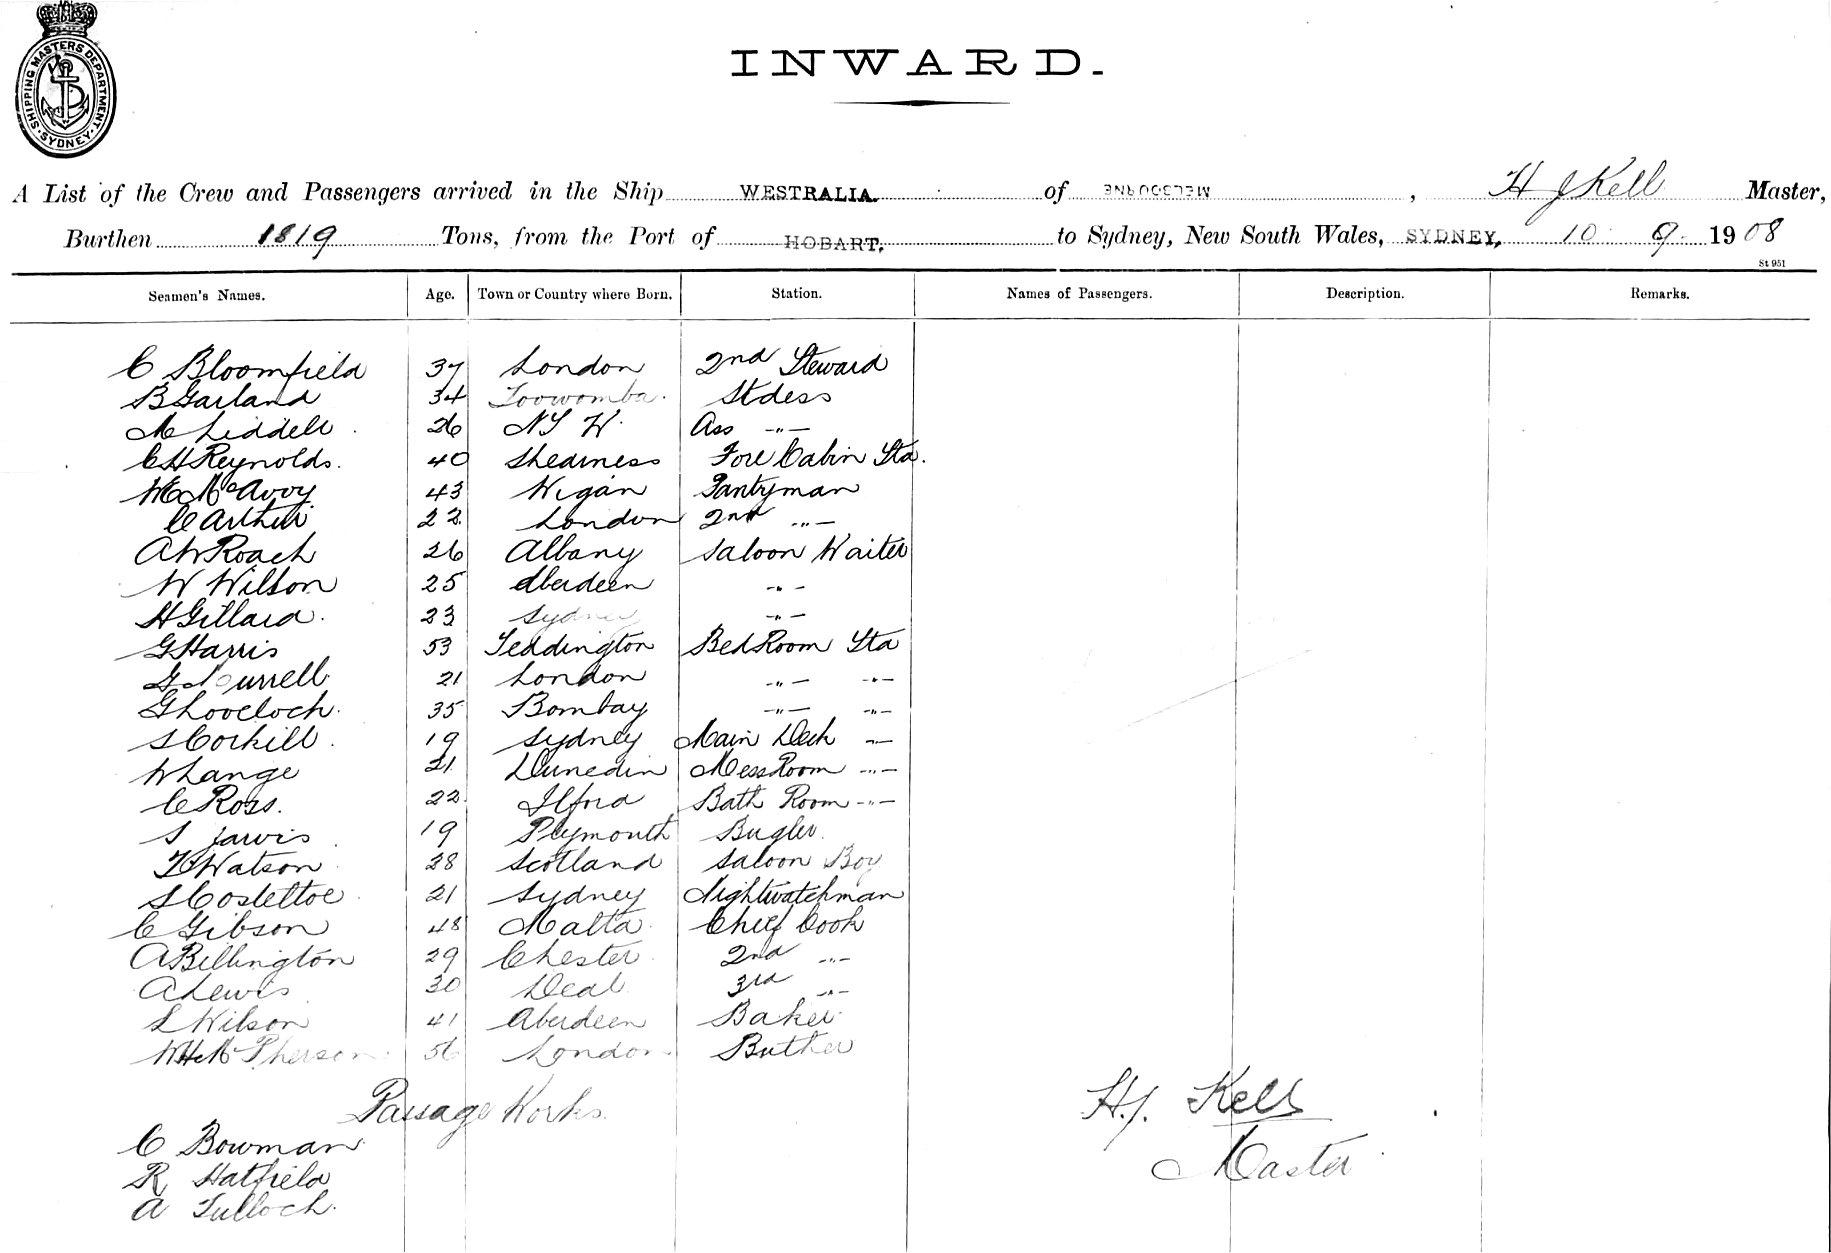 SHIPPING MASTERS DEPARTMENT. SYDNEY.
INWARD.
A List of the Crew and Passengers arrived in the Ship WESTRALIA. of MELBOURNE, H J Kell Master,
Burthen 1819 Tons, from the Port of HOBART. to Sydney, New South Wales, SYDNEY, 10 9 1908
St 951
Seamen's Names. Age. Town or Country where Born. Station. Names of Passengers. Description. Remarks.
C Bloomfield 37 London 2nd Steward
B Garland 34 Toowomba. Stdess
M Liddell 26 N S W. Ass -"-
C H Reynolds. 40 Sheerness Fore Cabin Std.
W E McAvoy 43 Wigan Pantryman
C Arthur 22 London 2nd -"-
A W Roach 26 Albany Saloon Waiter
W Wilson 25 Aberdeen -"-
H Gillard. 23 Sydney -"-
G Harris 53 Teddington Bed Room Std
G 21 London -"- -"-
G Lovelock. 35 Bombay -"- -"-
S Corkill 19 Sydney Main Deck -"-
W Lange 21 Dunedin Mess Room -"-
C Ross. 22 Ilford Bath Room -"-
S Jarvis 19 Plymouth Bugler.
Watson 28 Scotland Saloon Boy
S Costelloe 21 Sydney Nightwatchman
C Gibson 48 Malta. Chief Cook
A Billington 29 Chester 2nd -"-
A Lewis 30 Deal 3rd -"-
L Wilson 41 Aberdeen Baker
W H McPherson 56 London Buther
Passage Works.
C Bowman
R Hatfield
A Tulloch.
H.J. Kell
Master